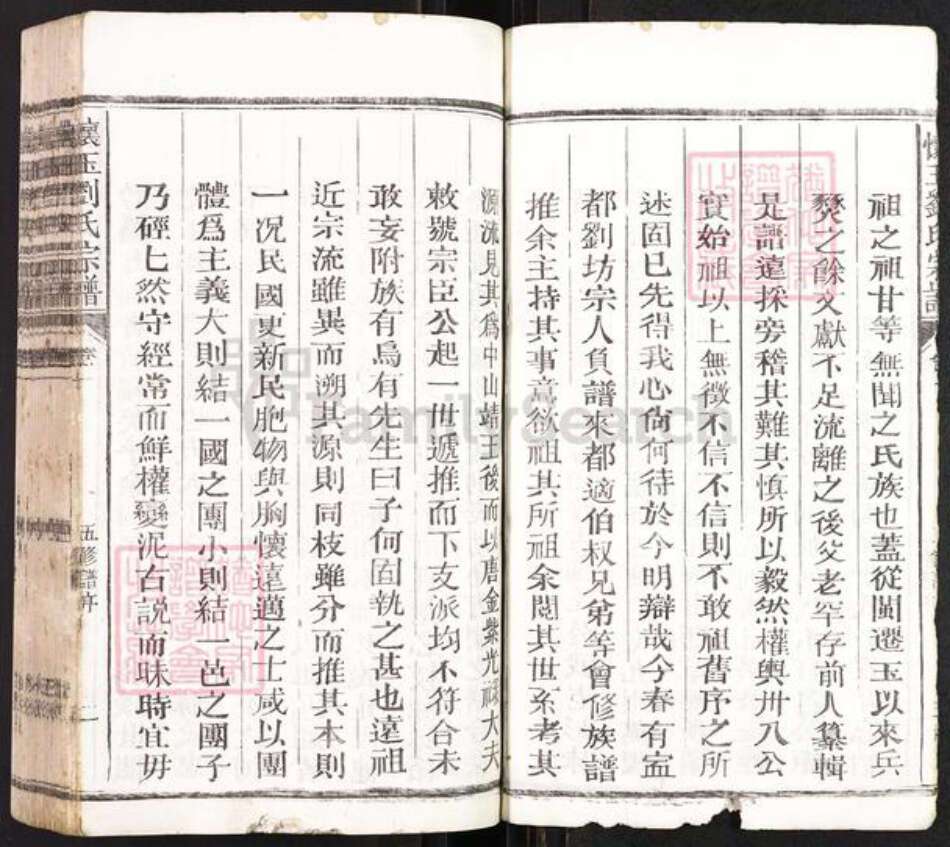 祖之祖甘等無聞之氏族也蓋從閩遷玉以來兵
燹之餘文獻不足流離之後父老罕存前人纂輯
是譜遠採旁稽其難其慎所以毅然權輿卅八公
實始祖以上無徵不信不信則不敢祖舊序之所
述固已先得我心尙何待於今明辯哉今春有宻
都劉坊宗人負譜來都適伯权兄第等會修族譜
推余主持其事意欲祖其所祖余閱其世系考其
源流見其爲中山靖王後而以唐金紫光祿大夫
敕號宗臣公起一世遞推而下支派均不符合未
敢妄附族有烏有先生曰子何固執之甚也遠祖
近宗流雖異而溯其源則同枝雖分而推其本則
一况民國更新民胞物與胸懷遠邁之士咸以團
體爲主義大則結一國之團小則結一邑之團子
乃硜匕然守經常而鮮權變泥古説而昧時宜毋
懷玉劉氏宗譜
五修譜序
懷玉劉氏宗譜
FamilySearch